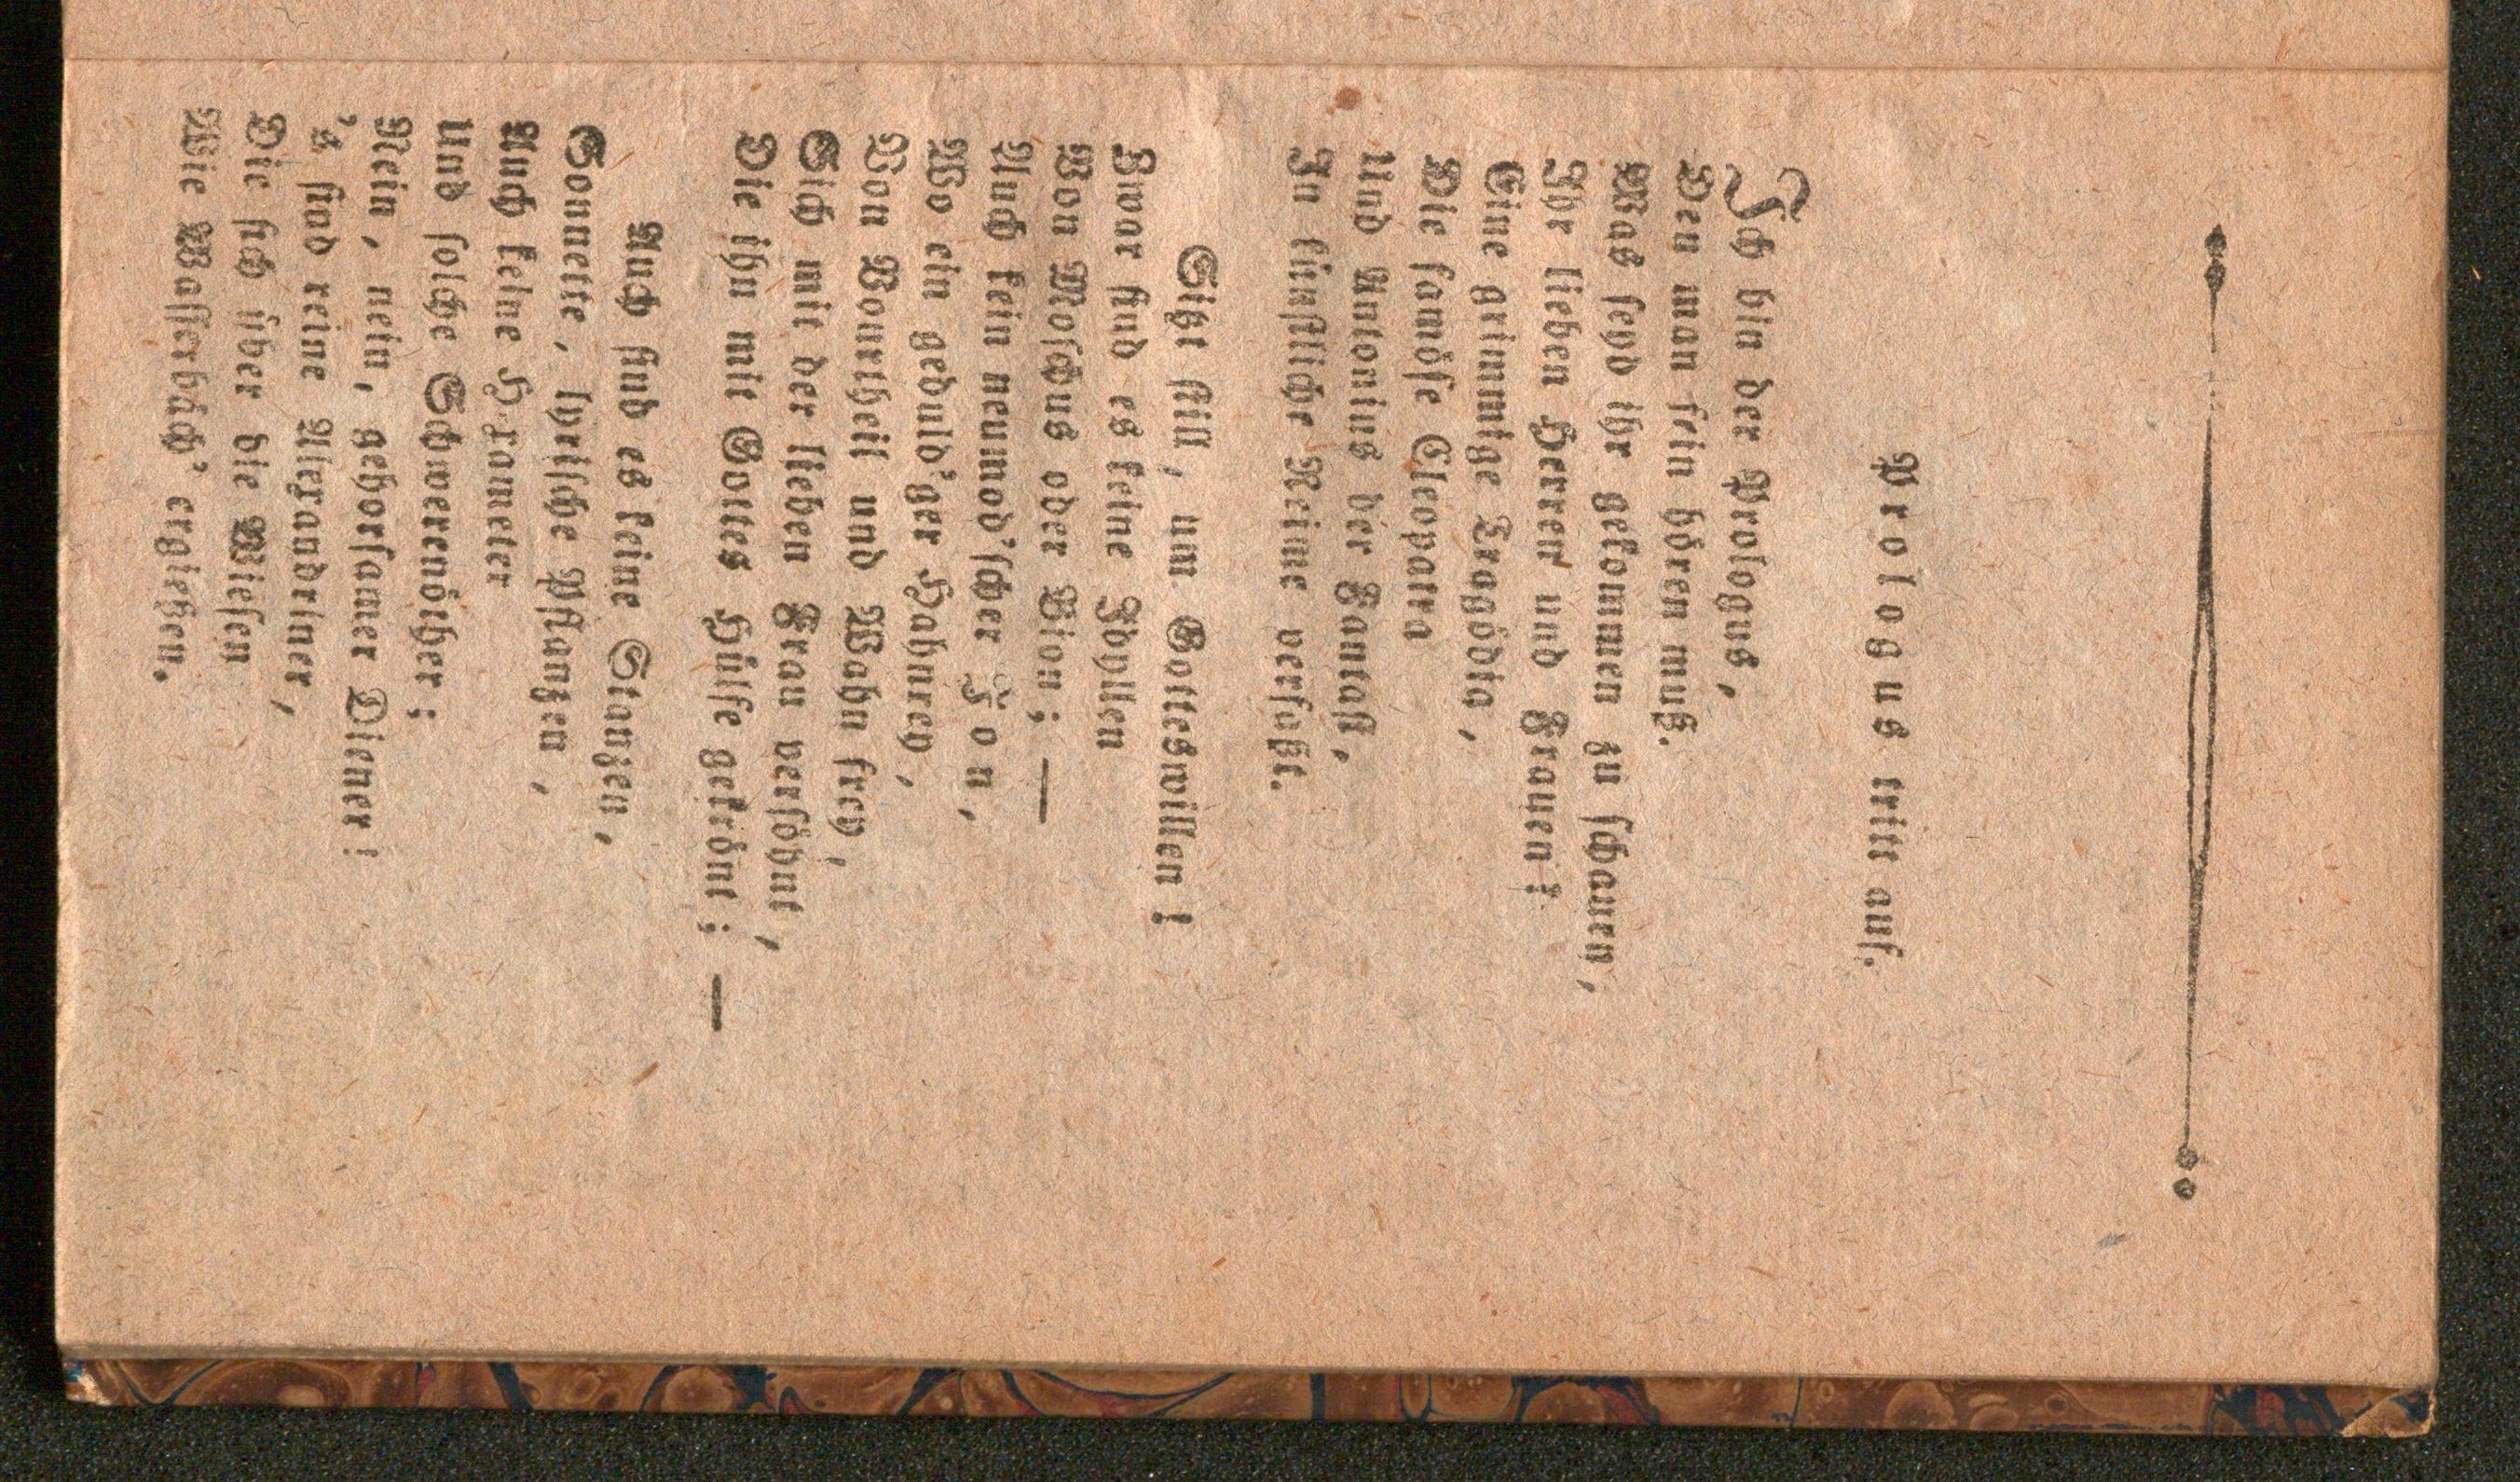 Prologus tritt auf.
Ich bin der Prologus,
Den man fein hören muß.
Was seyd ihr gekommen zu schauen,
Ihr lieben Herren und Frauen?
Eine grimmige Tragödia,
Die famöse Cleopatra
Und Antonius der Fantast,
In künstliche Reime verfaßt.
Sitzt still, um Gotteswillen!
Zwar sind es keine Idyllen
Von Moschus oder Bion; —
Auch kein neumod'scher Jon,
Wo ein geduld'ger Hahnrey,
Von Vourtheil und Wahn frey,
Sich mit der lieben Frau versöhnt,
Die ihn mit Gottes Hülfe gekrönt; —
Auch sind es keine Stanzen,
Sonnette, spreische Pflanzen,
Auch keine Hexameter
Und solche Schwerenöther;
Nein, nein, gehorsamer Diener!
's sind reine Alexandriner,
Die sich über die Wiesen
Wie Wasserbäch' ergießen.